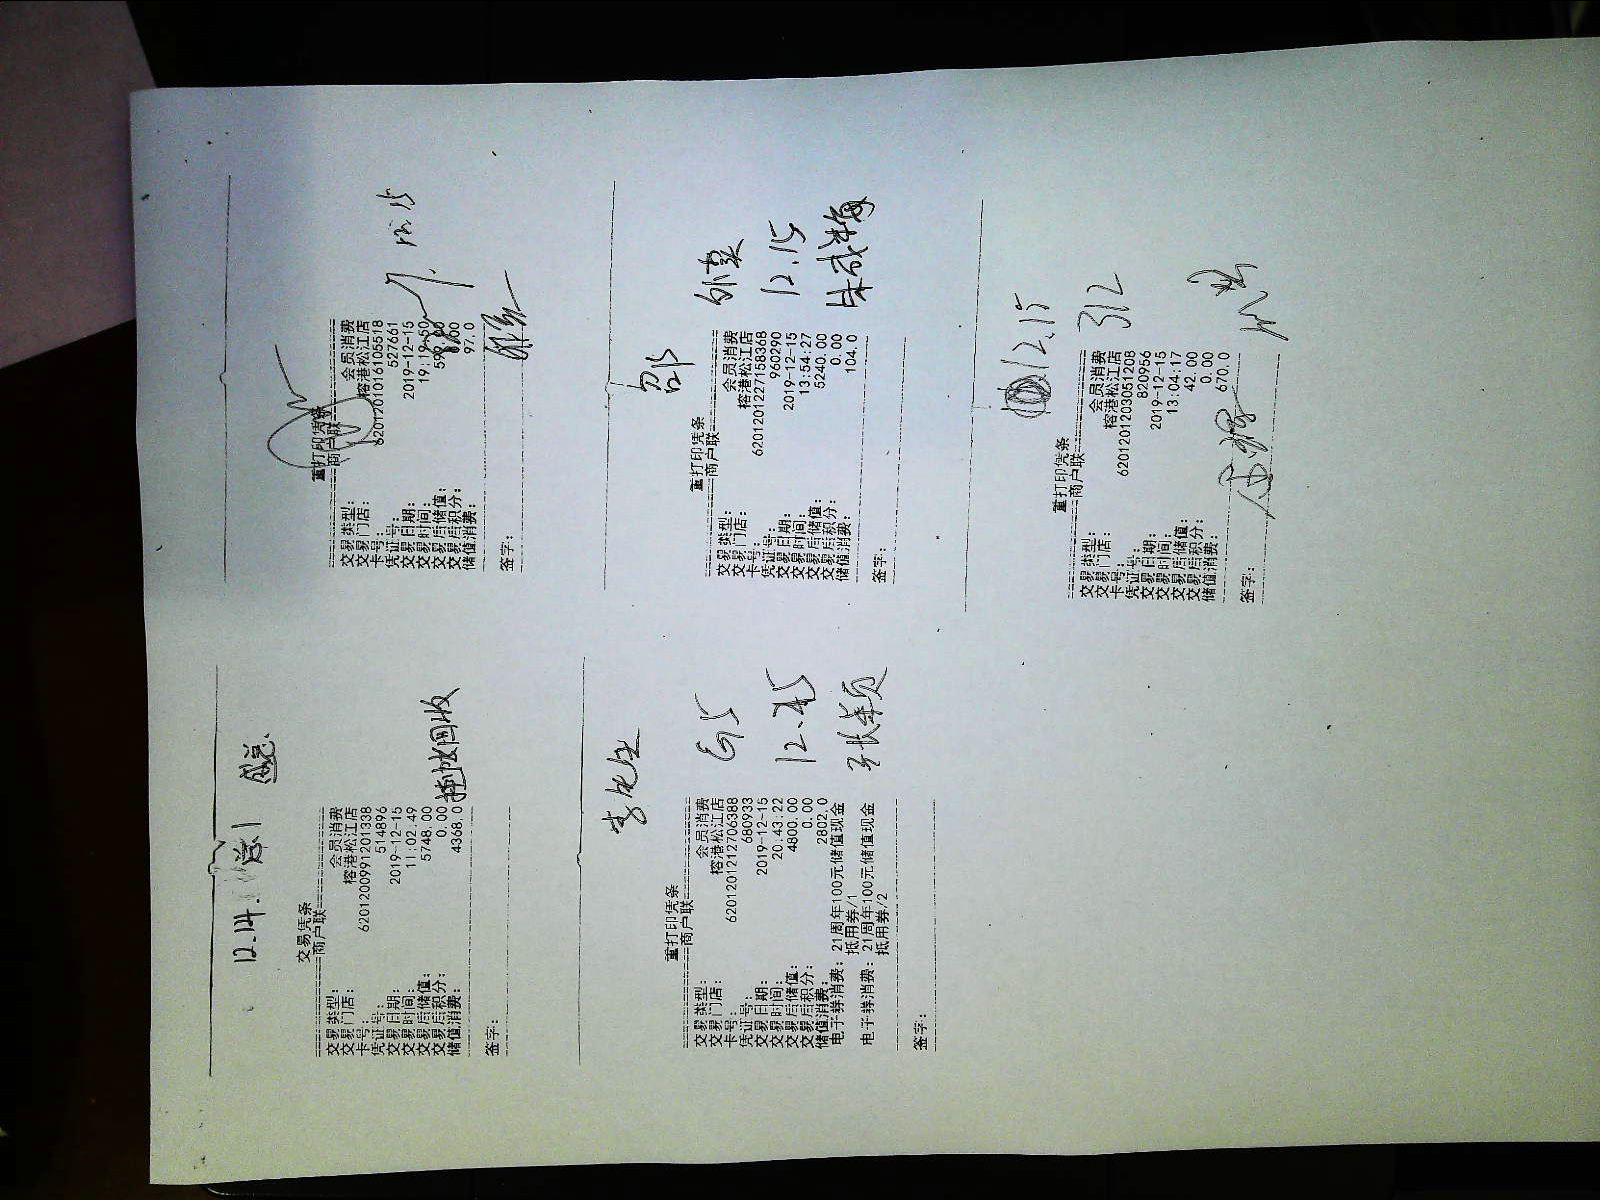 12.14.
交易凭条
商户联
交易类型: 会员消费
交易门店: 榕港松江店
卡号: 6201200991201338
凭证号: 514896
交易日期: 2019-12-15
交易时间: 11:02:49
交易后储值: 5748.00
交易后积分: 0.00
储值消费: 4368.0
挂帐回收
签字:
重打印凭条
商户联
交易类型: 会员消费
交易门店: 榕港松江店
卡号: 6201201016105518
凭证号: 527661
交易日期: 2019-12-15
交易时间: 19:19:50
交易后储值:
交易后积分:
储值消费: 97.0
签字:
李先生
12.15
重打印凭条
商户联
交易类型: 会员消费
交易门店: 榕港松江店
卡号: 6201201212706388
凭证号: 680933
交易日期: 2019-12-15
交易时间: 20:43:22
交易后储值: 4800.00
交易后积分: 0.00
储值消费: 2802.0
电子券消费: 21周年100元储值现金
抵用券/1
电子券消费: 21周年100元储值现金
抵用券/2
签字:
邵
外卖
12.15
重打印凭条
商户联
交易类型: 会员消费
交易门店: 榕港松江店
卡号: 6201201227158368
凭证号: 960290
交易日期: 2019-12-15
交易时间: 13:54:27
交易后储值: 5240.00
交易后积分: 0.00
储值消费: 104.0
签字:
12.15
312
重打印凭条
商户联
交易类型: 会员消费
交易门店: 榕港松江店
卡号: 6201201203051208
凭证号: 820956
交易日期: 2019-12-15
交易时间: 13:04:17
交易后储值: 42.00
交易后积分: 0.00
储值消费: 670.0
签字: